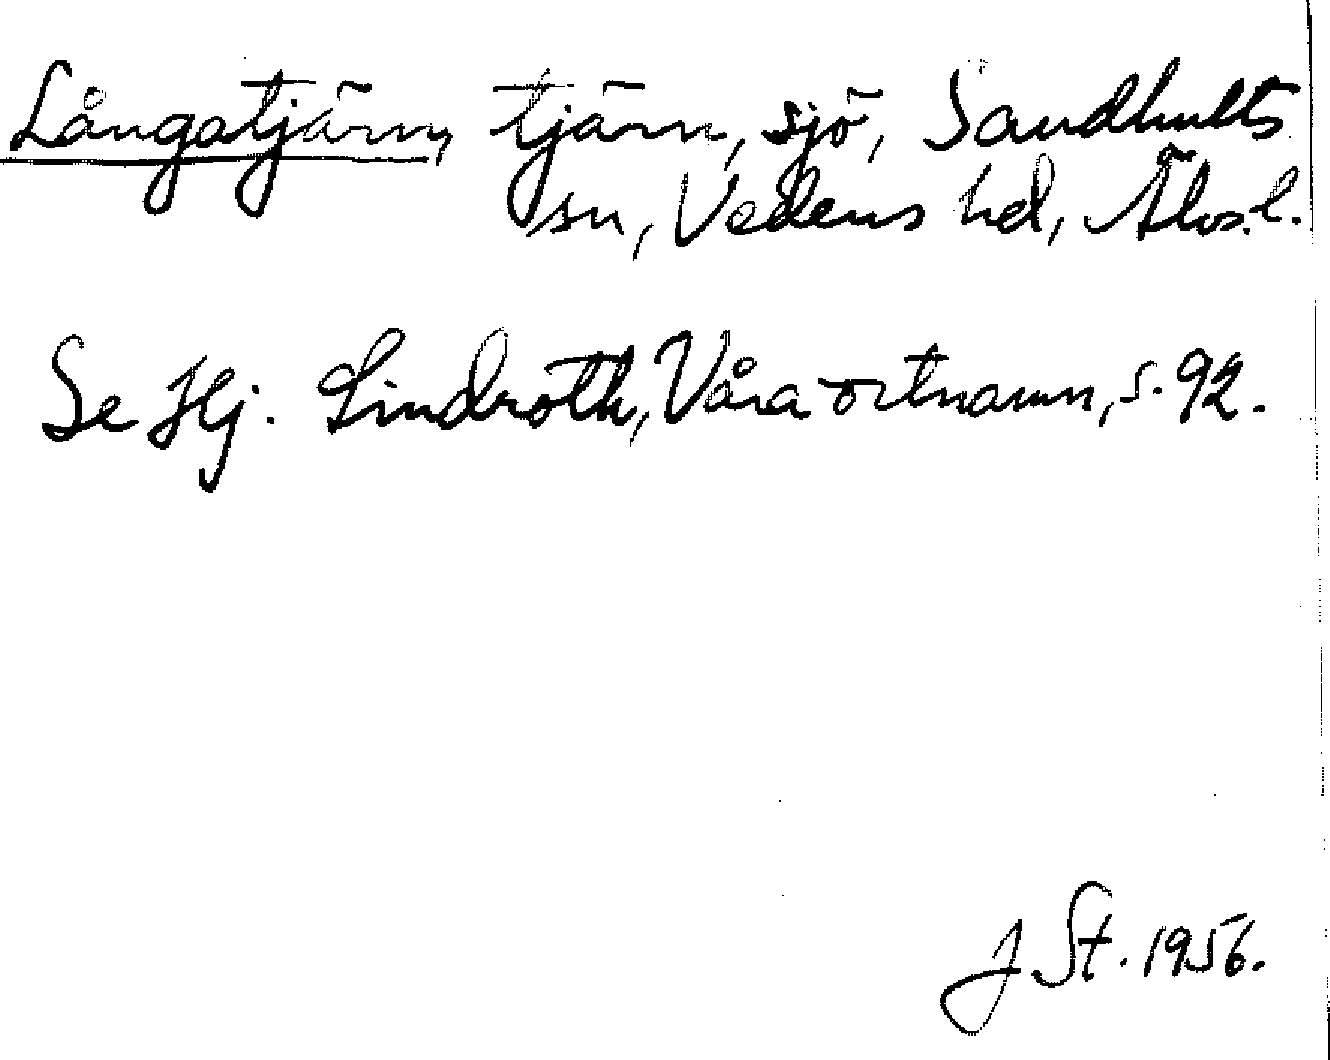 Långatjärn, tjärn, sjö, Sandhults
sn, Vedens hd, Älvs.l.
Se Hj. Lindroth, Våra ortnamn, s. 92.
J St. 1956.